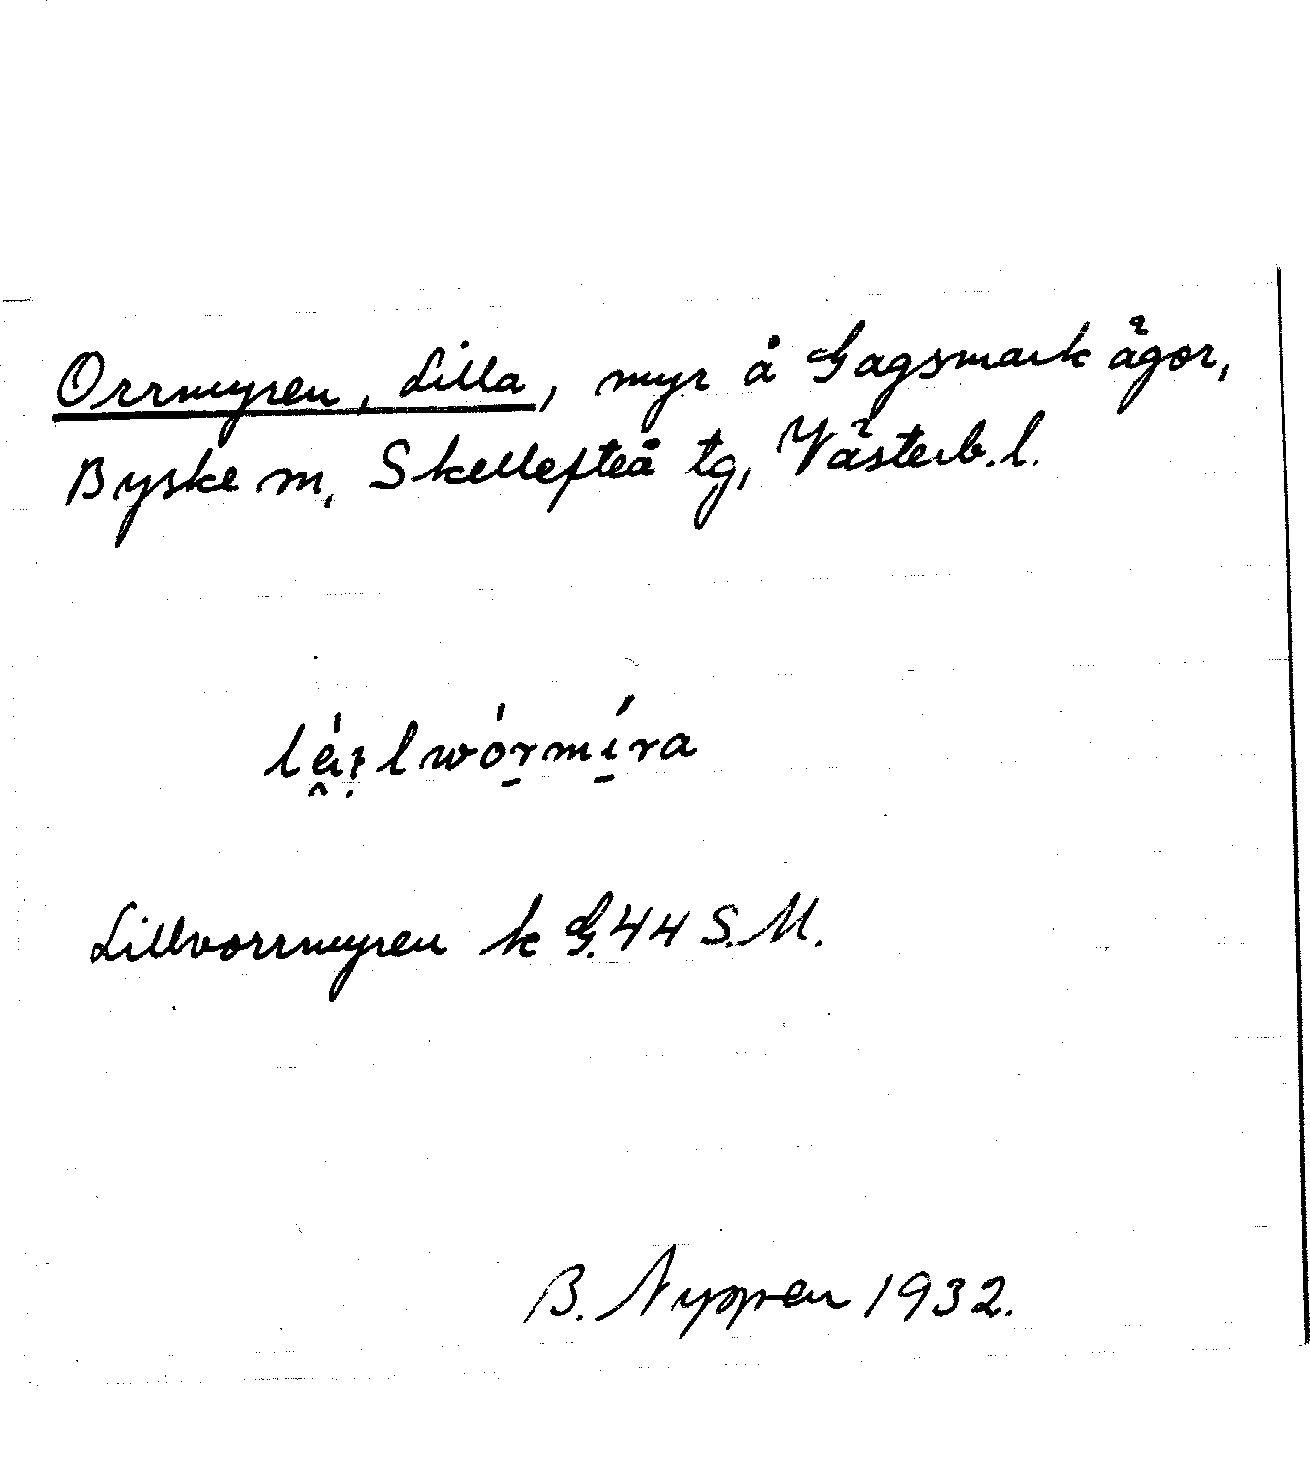 Orrmyren, Lilla, myr å Gagsmark ägor,
Byske sn, Skellefteå tg, Västerb. l.
Lillvorrmyren k G. 44 S. M.
B. Nyppen 1932.